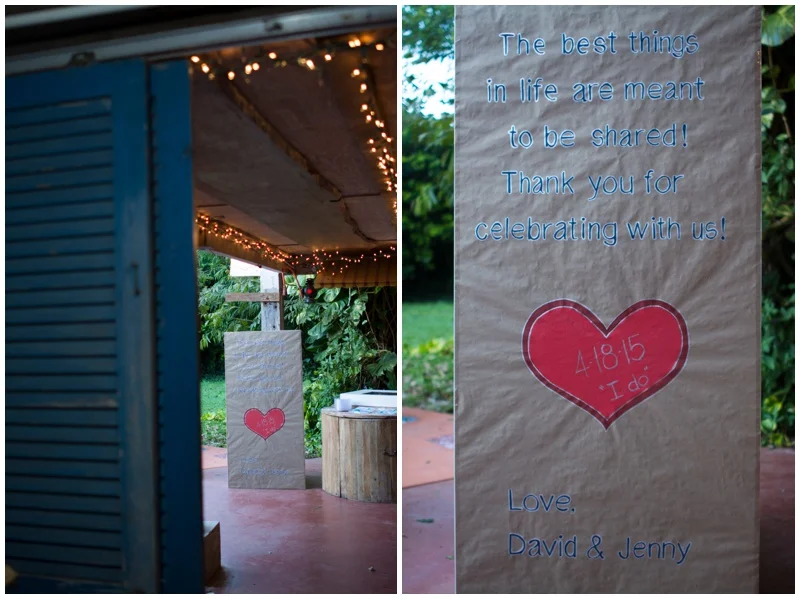 The best things
in life are meant
to be shared!
Thank you for
celebrating with us!
4·18·15
"I do"
Love,
David & Jenny